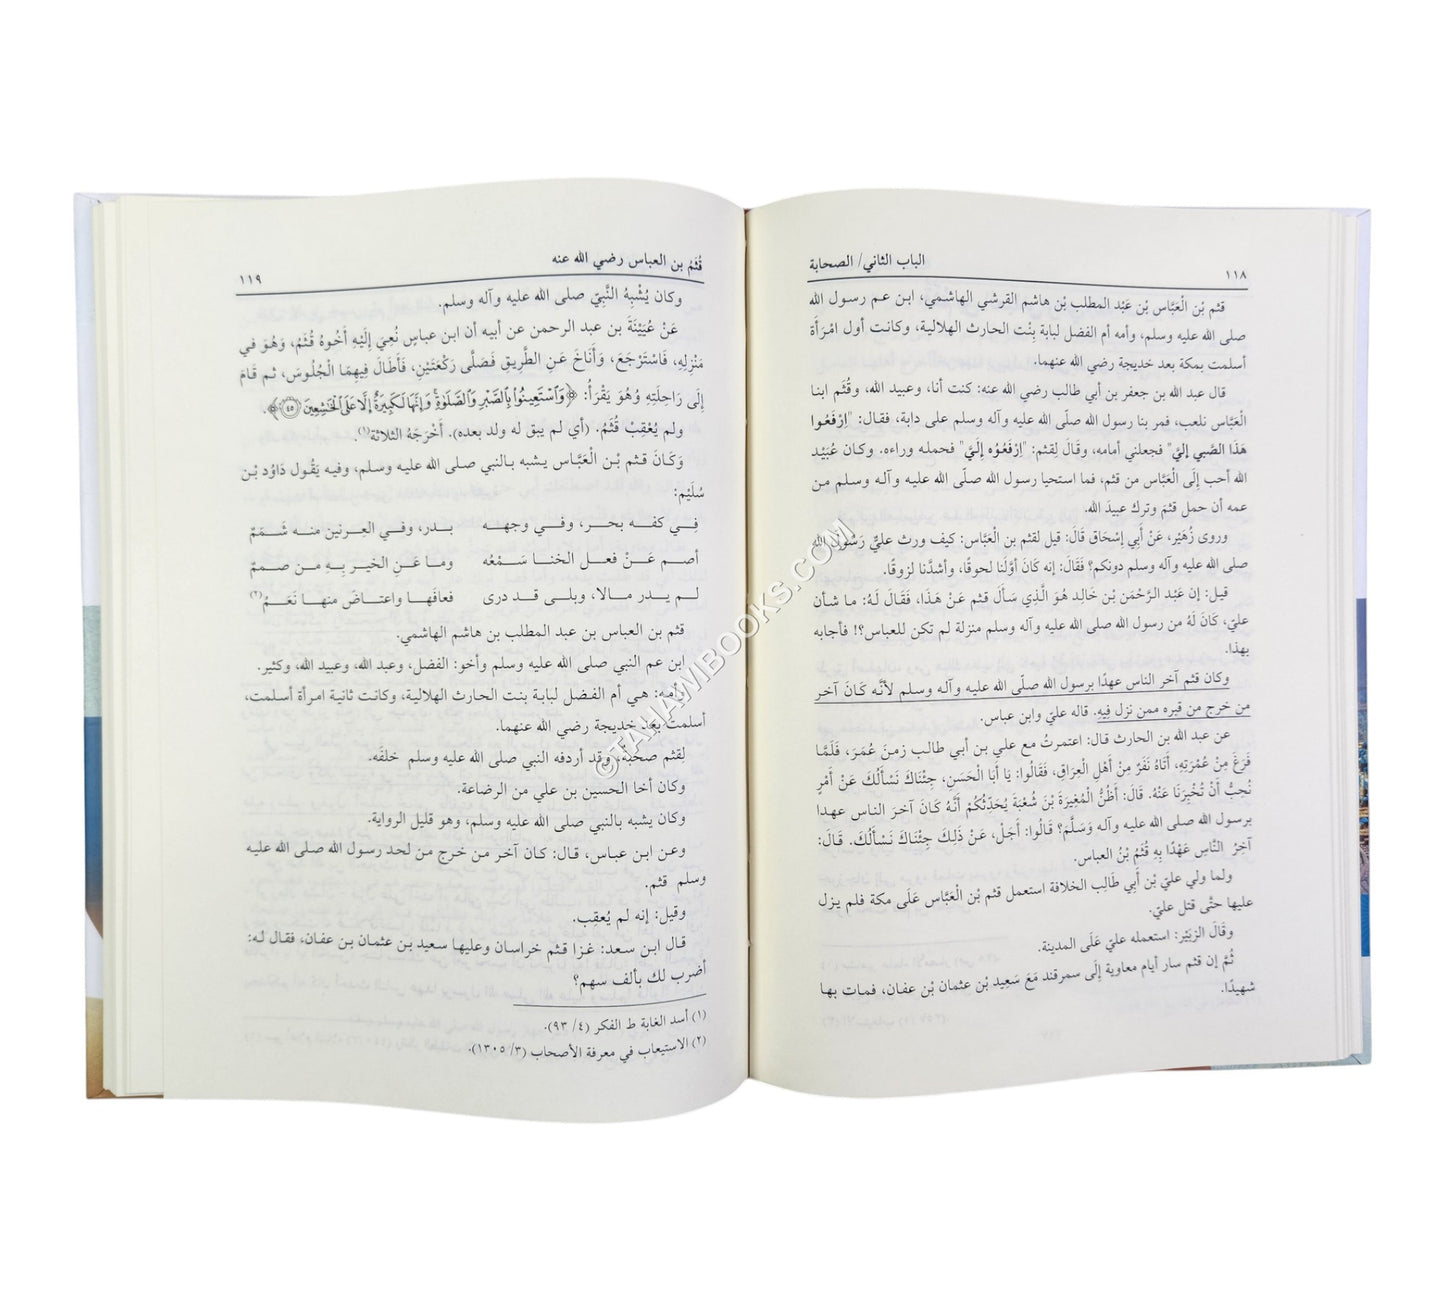 ١١٨
الباب الثاني/ الصحابة
قثم بْن الْعَبَّاس بْن عَبْد المطلب بْن هاشم القرشي الهاشمي، ابن عم رسول الله
صلى الله عليه وسلم، وأمه أم الفضل لبابة بِنْت الحارث الهلالية، وكانت أول امْرَأَة
أسلمت بمكة بعد خديجة رضي الله عنهما.
قال عبد الله بن جعفر بن أبي طالب رضي الله عنه: كنت أنا، وعبيد الله، وقُثَم ابنا
الْعَبَّاس نلعب، فمر بنا رسول الله صلّى الله عليه وآله وسلم على دابة، فقال: "اِرْفَعُوا
هَذَا الصَّبي إليَّ" فجعلني أمامه، وقَالَ لِقثم: "اِرْفَعُوْه إليَّ" فحمله وراءه. وكان عُبَيْد
الله أحب إلَى الْعَبَّاس من قثم، فما استحيا رسول الله صلّى الله عليه وآله وسلم من
عمه أن حمل قثمَ وترك عبيدَ الله.
وروى زُهَيْر، عَنْ أَبِي إِسْحَاق قَالَ: قيل لقثم بْن الْعَبَّاس: كيف ورث عليٌّ رَسُولَ الله
صلى الله عليه وآله وسلم دونكم؟ فَقَالَ: إنه كَانَ أوَّلَنا لحوقًا، وأشدَّنا لزوقًا.
قيل: إن عَبْد الرَّحْمَن بْن خَالِد هُوَ الَّذِي سَأَلَ قثم عَنْ هَذَا، فَقَالَ لَهُ: ما شأن
عليّ، كَانَ لَهُ من رسول الله صلى الله عليه وآله وسلم منزلة لم تكن للعباس؟! فأجابه
بهذا.
وكان قثم آخر الناس عهدًا برسول الله صلّى الله عليه وآله وسلم لأنَّه كَانَ آخر
من خرج من قبره ممن نزل فِيهِ. قاله عليّ وابن عباس.
عن عبد الله بن الحارث قال: اعتمرتُ مع علي بن أبي طالب زمنَ عُمَرَ، فَلَمَّا
فَرَغَ مِنْ عُمْرَتِهِ، أَتَاهُ نَفَرٌ مِنْ أهْلِ العِرَاقِ، فَقَالُوا: يَا أبَا الْحَسَنِ، جِئْنَاكَ نَسْأَلُكَ عَنْ أَمْرٍ
نُحِبُّ أنْ تُخْبِرَنَا عَنْهُ. قَالَ: أَظُنُّ الْمُغِيرَةَ بْنَ شُعْبَةَ يُحَدِّثُكُمْ أَنَّهُ كَانَ آخرَ الناس عهدا
برسول الله صلى الله عليه وآله وَسَلَّمَ؟ قَالُوا: أَجَلْ، عَنْ ذَلِكَ جِئْنَاكَ نَسْأَلُكَ. قَالَ:
آخِرُ النَّاسِ عَهْدًا بِهِ قُثَمُ بْنُ العباس.
ولما ولي عليّ بْن أَبِي طَالِب الخلافة استعمل قثم بْن الْعَبَّاس عَلَى مكة فلم يزل
عليها حتَّى قتل عليّ.
وقَالَ الزبَيْر: استعمله عليّ عَلَى المدينة.
ثُمَّ إن قثم سار أيام معاوية إِلَى سمرقند مَعَ سَعِيد بْن عثمان بْن عفان، فمات بها
شهيدًا.
قُثَمُ بن العباس رضي الله عنه
١١٩
وكان يُشْبِهُ النَّبِيّ صلى الله عليه وآله وسلم.
عَنْ عُيَيْنَةَ بن عبد الرحمن عن أبيه أن ابن عباسٍ نُعِيَ إِلَيْهِ أَخُوهُ قُثَمُ، وَهُوَ في
مَنْزِلِهِ، فَاسْتَرْجَعَ، وَأَنَاخَ عَنِ الطَّرِيقِ فَصَلَّى رَكْعَتَيْنِ، فَأَطَالَ فِيهِمَا الْجُلُوسَ، ثم قَامَ
إِلَى رَاحِلَتِهِ وُهُوَ يَقْرَأُ: ﴿وَٱسْتَعِينُوا۟ بِٱلصَّبْرِ وَٱلصَّلَوٰةِ ۚ وَإِنَّهَا لَكَبِيرَةٌ إِلَّا عَلَى ٱلْخَٰشِعِينَ ٤٥﴾.
ولم يُعْقِبْ قُثَمُ. (أي لم يبق له ولد بعده). أَخْرَجَهُ الثلاثة(١).
وَكَانَ قثم بْن الْعَبَّاس يشبه بالنبي صلى الله عليه وسلم، وفيه يَقُول دَاوُد بْن
سُلَيْم:
فِي كفه بحر، وفي وجهه بدر، وفي العِرنين منه شَمَمٌ
أصم عَنْ فعل الخنا سَمْعُه وما عَنِ الخير بِه من صممٌ
لم يدر مالا، وبلى قد درى فعافَها واعتاضَ منها نَعَمُ(٢)
قثم بن العباس بن عبد المطلب بن هاشم الهاشمي.
ابن عم النبي صلى الله عليه وسلم وأخو: الفضل، وعبد الله، وعبيد الله، وكثير.
وأمه: هي أم الفضل لبابة بنت الحارث الهلالية، وكانت ثانية امرأة أسلمت،
أسلمت بعد خديجة رضي الله عنهما.
لِقثم صحبة، وقد أردفه النبي صلى الله عليه وسلم خلفَه.
وكان أخا الحسين بن علي من الرضاعة.
وكان يشبه بالنبي صلى الله عليه وسلم، وهو قليل الرواية.
وعن ابن عباس، قال: كان آخر من خرج من لحد رسول الله صلى الله عليه
وسلم قثم.
وقيل: إنه لم يُعقِب.
قال ابن سعد: غزا قثم خراسان وعليها سعيد بن عثمان بن عفان، فقال له:
أضرب لك بألف سهم؟
(١) أسد الغابة ط الفكر (٤/ ٩٣).
(٢) الاستيعاب في معرفة الأصحاب (٣/ ١٣٠٥).
©TAHAMIBOOKS.COM